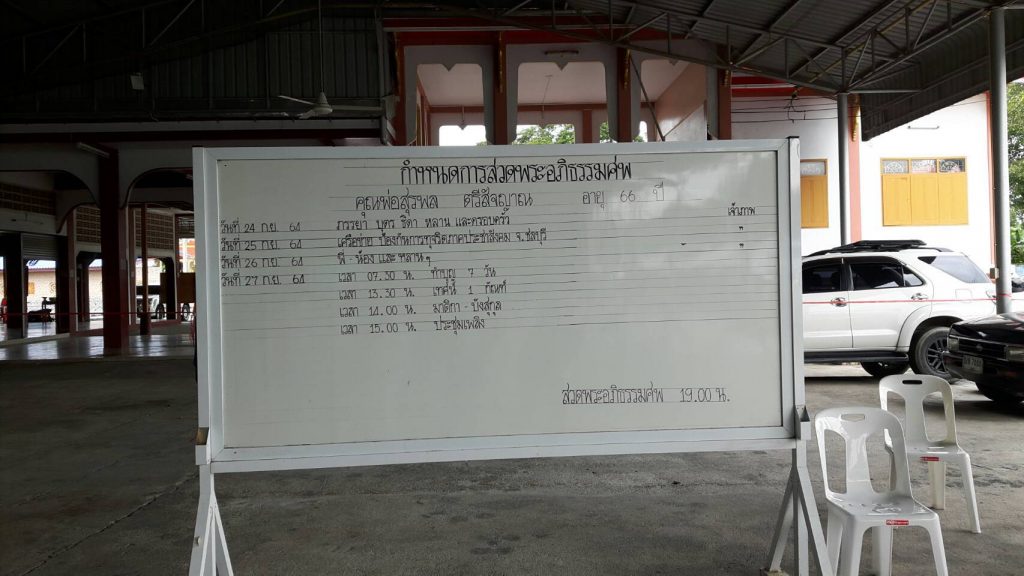 กำหนดการสวดพระอภิธรรมศพ
คุณพ่อสุรพล ศรีสัจญาณ อายุ 66 ปี
วันที่ 24 ก.ย. 64 ภรรยา บุตร ธิดา หลาน และครอบครัว เจ้าภาพ
วันที่ 25 ก.ย. 64 เครือข่าย ป้องกันการทุจริตภาคประชาสังคม จ.ชลบุรี "
วันที่ 26 ก.ย. 64 พี่ - น้อง และ หลานๆ "
วันที่ 27 ก.ย. 64 เวลา 07.30 น. ทำบุญ 7 วัน
เวลา 13.30 น. เทศน์ 1 กัณฑ์
เวลา 14.00 น. มาติกา - บังสุกุล
เวลา 15.00 น. ประชุมเพลิง
สวดพระอภิธรรมศพ 19.00 น.